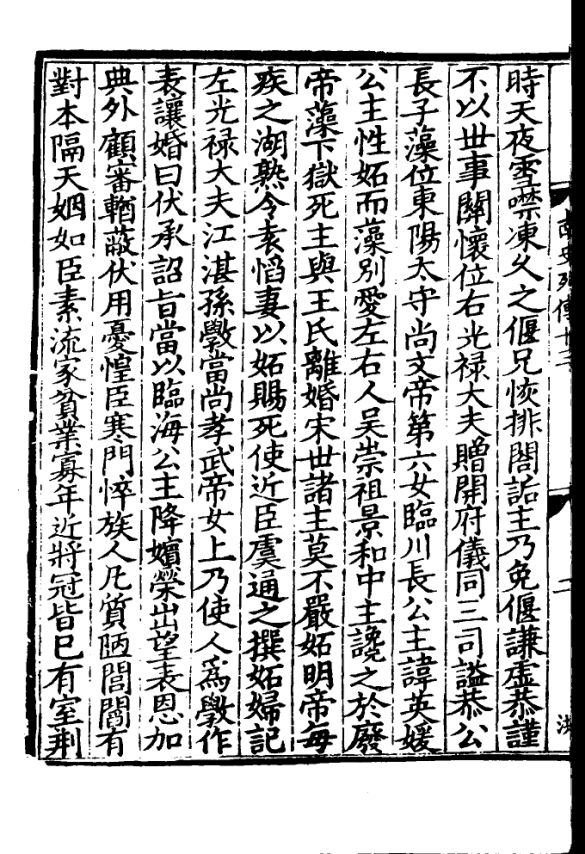 時天夜雪噤凍久之偃兄恢排閤詬主乃免偃謙虚恭謹
不以世事關懷位右光禄大夫贈開府儀同三司謚恭公
長子藻位東陽太守尚文帝第六女臨川長公主諱英媛
公主性妬而藻別愛左右人吳崇祖景和中主讒之於廢
帝藻下獄死主與王氏離婚宋世諸主莫不嚴妬明帝每
疾之湖熟令袁慆妻以妬賜死使近臣虞通之撰妬婦記
左光禄大夫江湛孫斆當尚孝武帝女上乃使人爲斆作
表讓婚曰伏承詔旨當以臨海公主降嬪榮出望表恩加
典外顧審輶蔽伏用憂惶臣寒門悴族人凡質陋閭閻有
對本隔天姻如臣素流家貧業寡年近將冠皆已有室荆
南史列傳十三
二